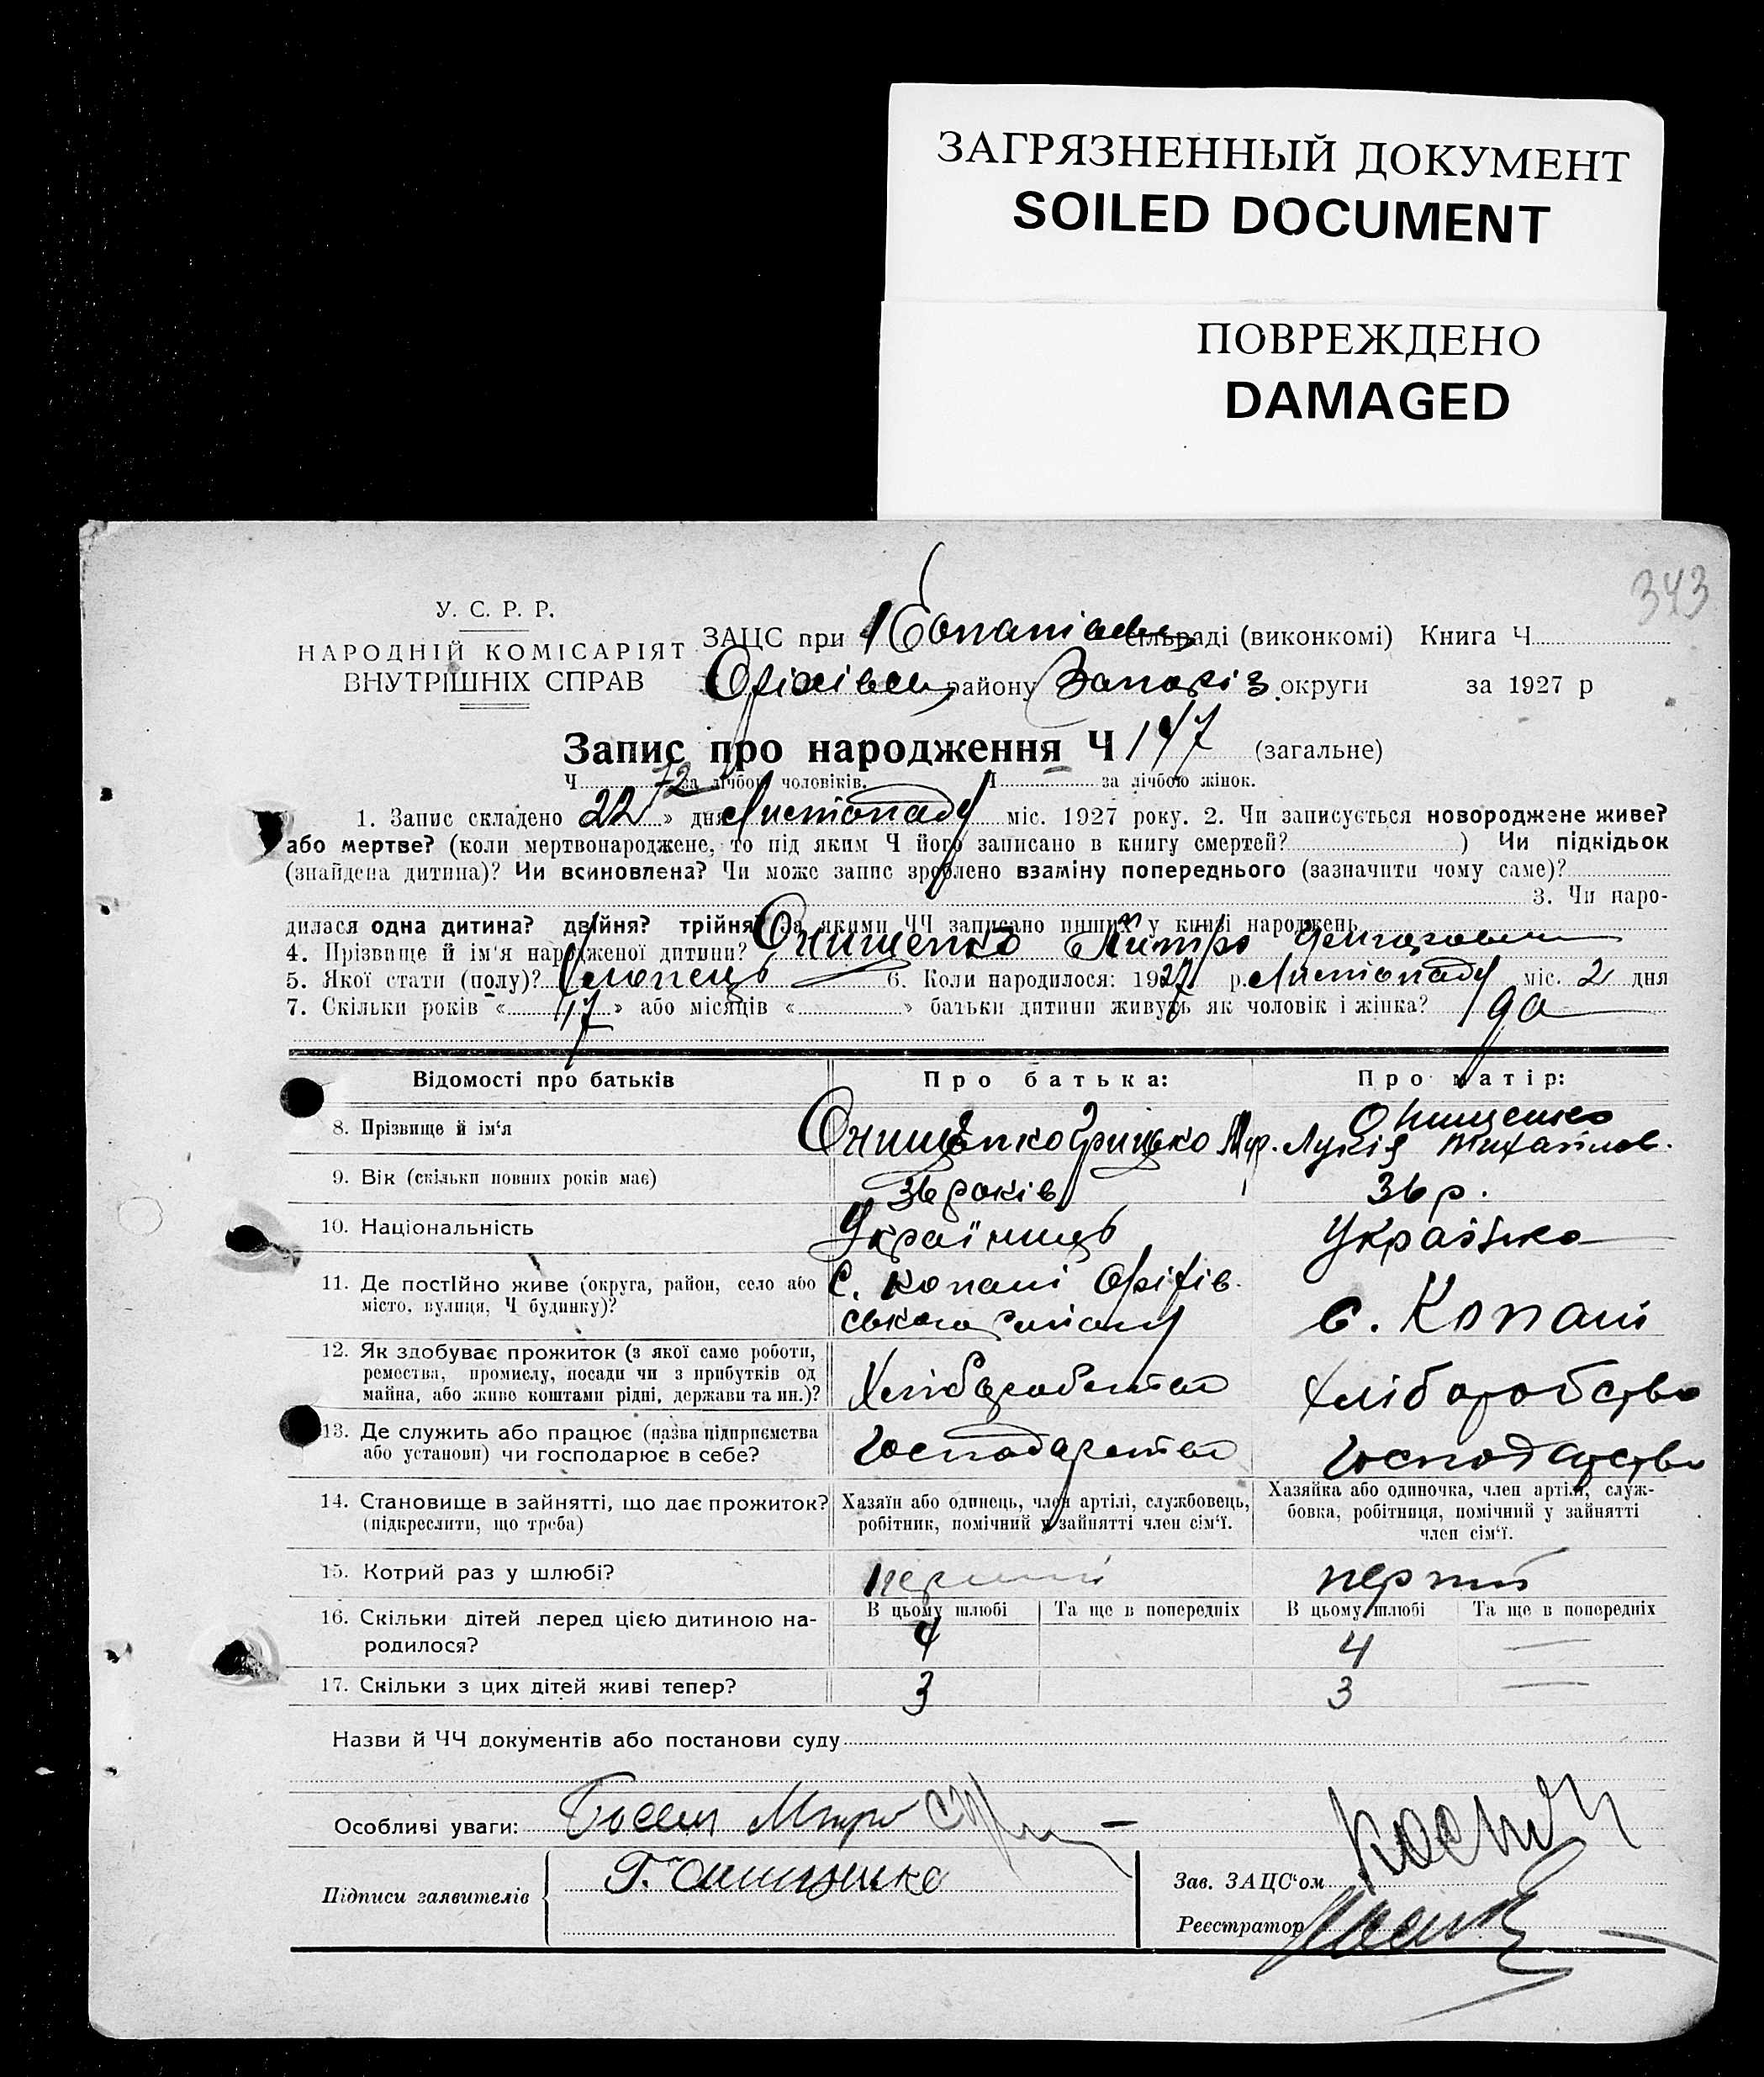 ЗАГРЯЗНЕННЫЙ ДОКУМЕНТ
SOILED DOCUMENT
ПОВРЕЖДЕНО
DAMAGED
343
У. С. Р. Р.
НАРОДНІЙ КОМІСАРІЯТ
ВНУТРІШНІХ СПРАВ
ЗАЦС при Копанівськ сільраді (виконкомі) Книга Ч
Оріхівськ району Запоріз. округи за 1927 р
Запис про народження Ч 147 (загальне)
Ч 72 за лічбою чоловіків. Ч за лічбою жінок.
1. Запис складено 22 » дня Листопаду міс. 1927 року. 2. Чи записується новороджене живе?
або мертве? (коли мертвонароджене, то під яким Ч його записано в книгу смертей? ) Чи підкідьок
(знайдена дитина)? Чи всиновлена? Чи може запис зроблено взаміну попереднього (зазначити чому саме)?
3. Чи наро-
дилася одна дитина? двійня? трійня? За якими ЧЧ записано инших у книзі народжень
4. Прізвище й ім'я народженої дитини? Онищенко Митро
5. Якої стати (полу)? Хлопець 6. Коли народилося: 1927 р. Листопаду міс. 2 дня
7. Скільки років « 17 » або місяців « » батьки дитини живуть як чоловік і жінка? да
Відомості про батьків
Про батька:
Про матір:
8. Прізвище й ім'я
Онищенко Грицько
Онищенко
Лукія Михайлов.
9. Вік (скільки повних років має)
36 років
36 р.
10. Національність
Українець
Українка
11. Де постійно живе (округа, район, село або
місто, вулиця, Ч будинку)?
С. Копані Оріхів
ського району
с. Копані
12. Як здобуває прожиток (з якої саме роботи,
ремества, промислу, посади чи з прибутків од
майна, або живе коштами рідні, держави та ин.)?
Хліборобство
хліборобство
13. Де служить або працює (назва підприємства
або установи) чи господарює в себе?
Господарство
Господарство
14. Становище в зайнятті, що дає прожиток?
(підкреслити, що треба)
Хазяїн або одинець, член артілі, службовець,
робітник, помічний у зайнятті член сім'ї.
Хазяйка або одиночка, член артілі, служ-
бовка, робітниця, помічний у зайнятті
член сім'ї.
15. Котрий раз у шлюбі?
перший
перший
16. Скільки дітей перед цією дитиною на-
родилося?
В цьому шлюбі Та ще в попередніх В цьому шлюбі Та ще в попередніх
4 4 —
17. Скільки з цих дітей живі тепер?
3 3 —
Назви й ЧЧ документів або постанови суду
Особливі уваги:
Підписи заявителів
Г. Онищенко
Зав. ЗАЦС'ом
Реєстратор